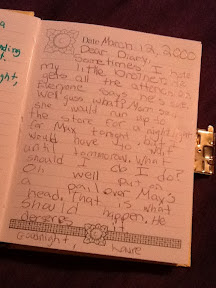 Date March 12, 2000
Dear Diary,
Sometimes I hate
my little brother. He
gets all the attention.
Everyone says he's cute.
Well guess what? Mom said
she would run up to
the store for a night light
for Max tonight, but I
would have to wait
until tommorow. What
should I do?
Oh well put
a pail over Max's
head. That is what
should happen. He
deserves it.
Goodnight,